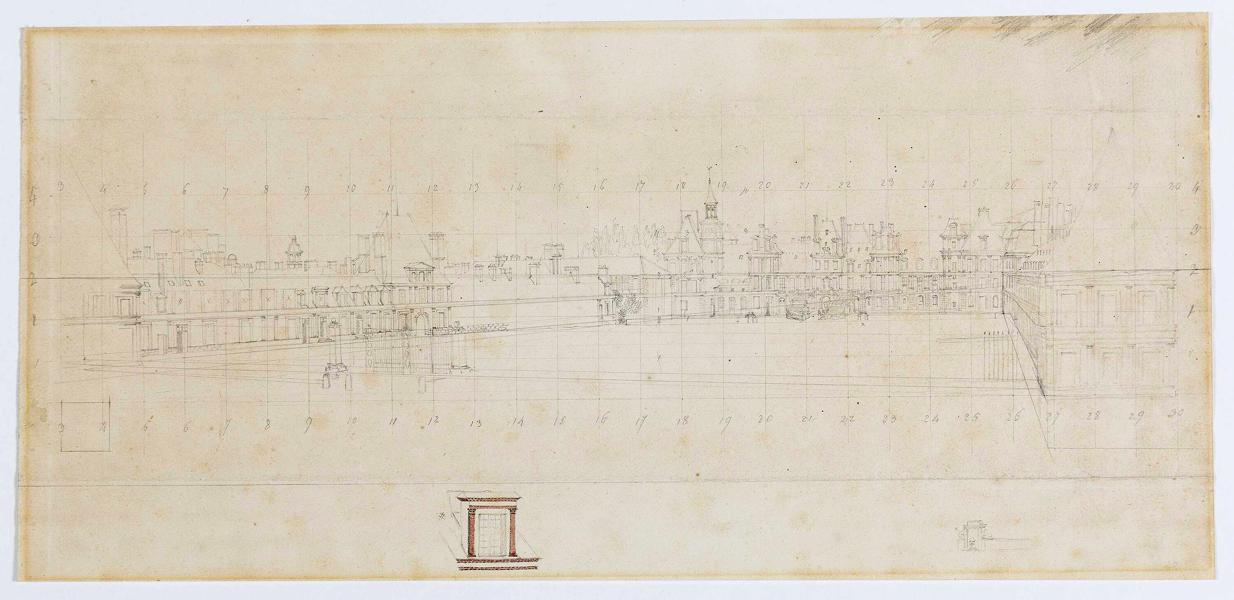 3 4 5 6 7 8 9 10 11 12 13 14 15 16 17 18 19 20 21 22 23 24 25 26 27 28 29 30
4 4
3 3
2 2
1 1
3 4 5 6 7 8 9 10 11 12 13 14 15 16 17 18 19 20 21 22 23 24 25 26 27 28 29 30